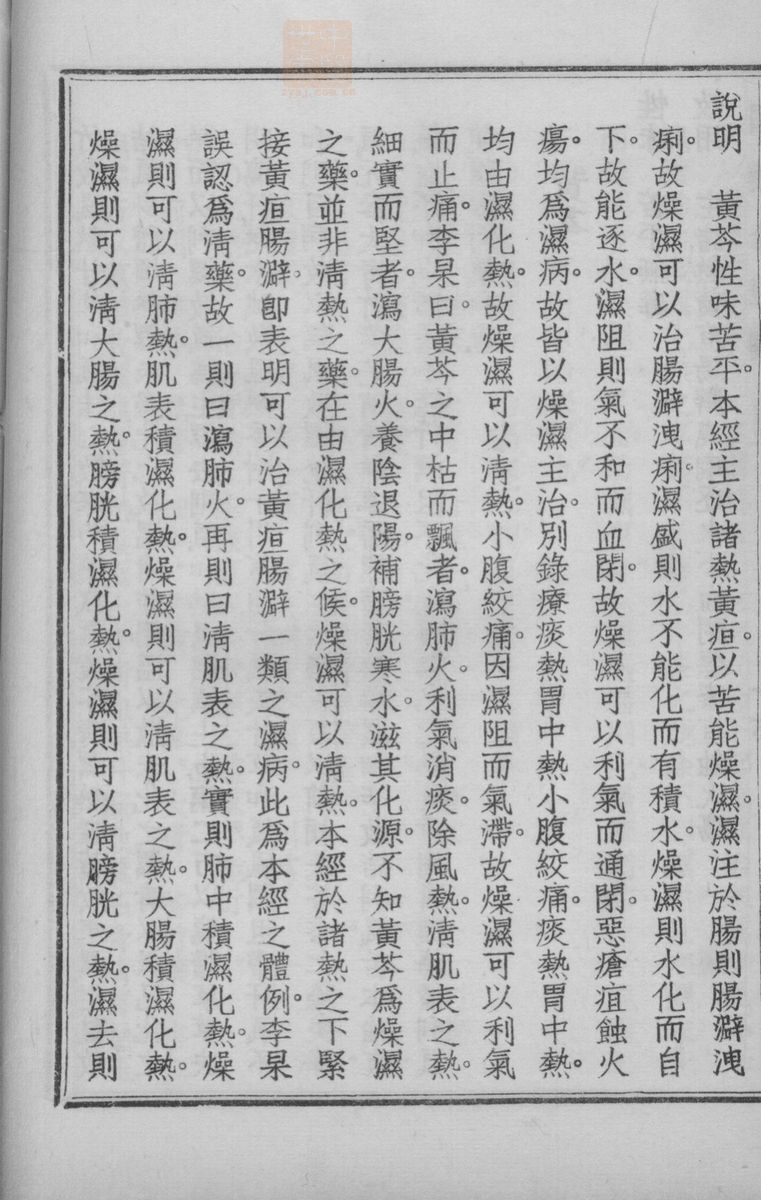 說明　黃芩性味苦平。本經主治諸熱黃疸。以苦能燥濕。濕注於腸則腸澼洩
痢。故燥濕可以治腸澼洩痢。濕盛則水不能化而有積水。燥濕則水化而自
下。故能逐水。濕阻則氣不和而血閉。故燥濕可以利氣而通閉。惡瘡疽蝕火
瘍。均為濕病。故皆以燥濕主治。別錄療痰熱胃中熱小腹絞痛。痰熱胃中熱。
均由濕化熱。故燥濕可以清熱。小腹絞痛。因濕阻而氣滯。故燥濕可以利氣
而止痛。李杲曰。黃芩之中枯而飄者。瀉肺火。利氣消痰。除風熱。清肌表之熱。
細實而堅者。瀉大腸火。養陰退陽。補膀胱寒水。滋其化源。不知黃芩為燥濕
之藥。並非清熱之藥。在由濕化熱之候。燥濕可以清熱。本經於諸熱之下緊
接黃疸腸澼。卽表明可以治黃疸腸澼一類之濕病。此為本經之體例。李杲
誤認為清藥。故一則曰瀉肺火。再則曰清肌表之熱。實則肺中積濕化熱。燥
濕則可以清肺熱。肌表積濕化熱。燥濕則可以清肌表之熱。大腸積濕化熱。
燥濕則可以清大腸之熱。膀胱積濕化熱。燥濕則可以清膀胱之熱。濕去則
zysj.com.cn